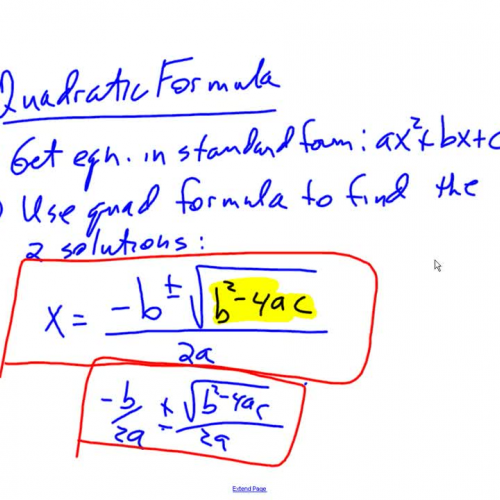 Quadratic Formula
Get eqn. in standard form: ax²+bx+c
) Use quad formula to find the
2 solutions:
x = (-b ± √(b²-4ac)) / 2a
-b/2a ± √(b²-4ac)/2a
Extend Page